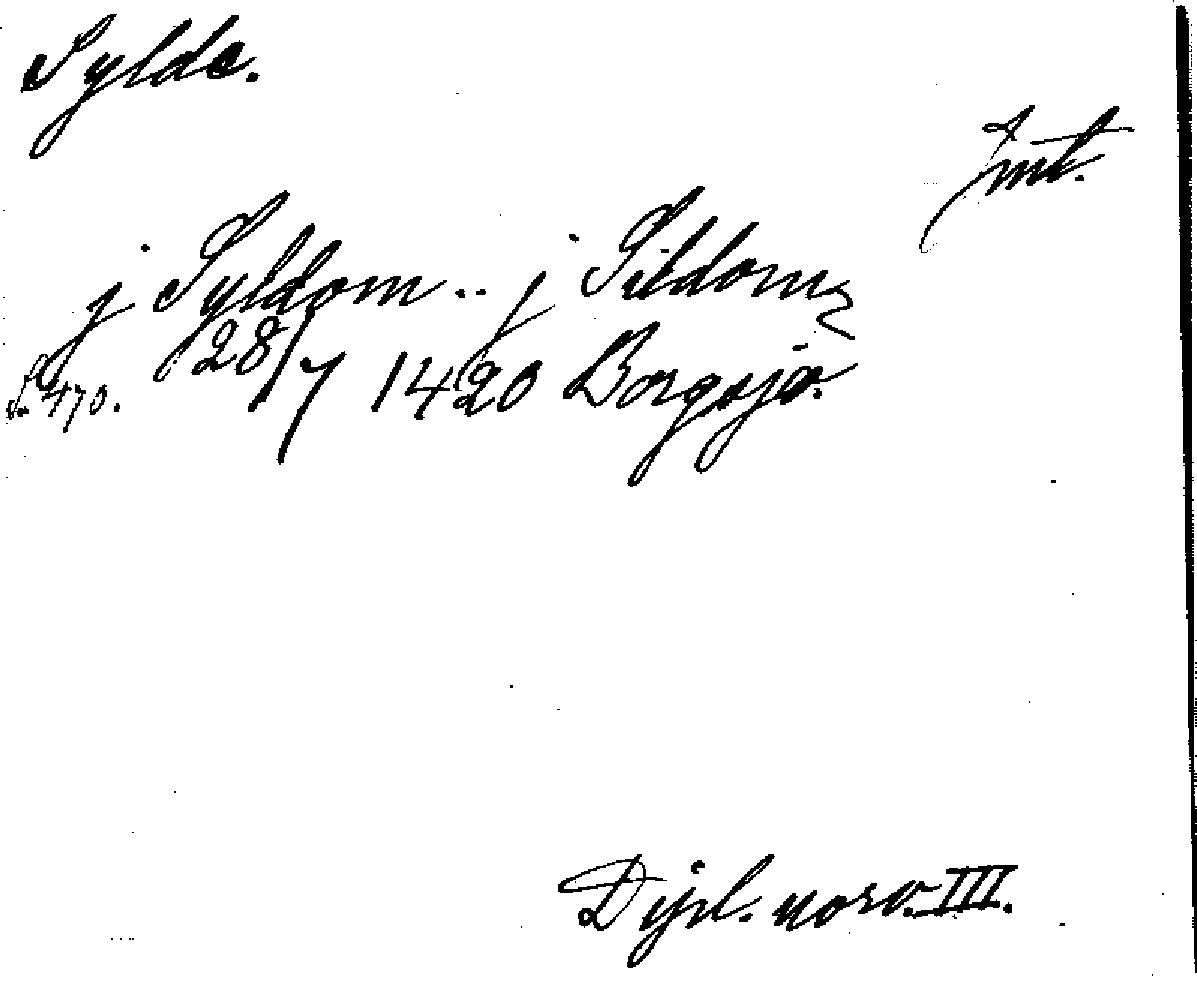 Sylde.
Jmt.
j Syldom .. j Sildom
S. 470. 28/7 1420 Borgsjö.
Dipl. norv. III.